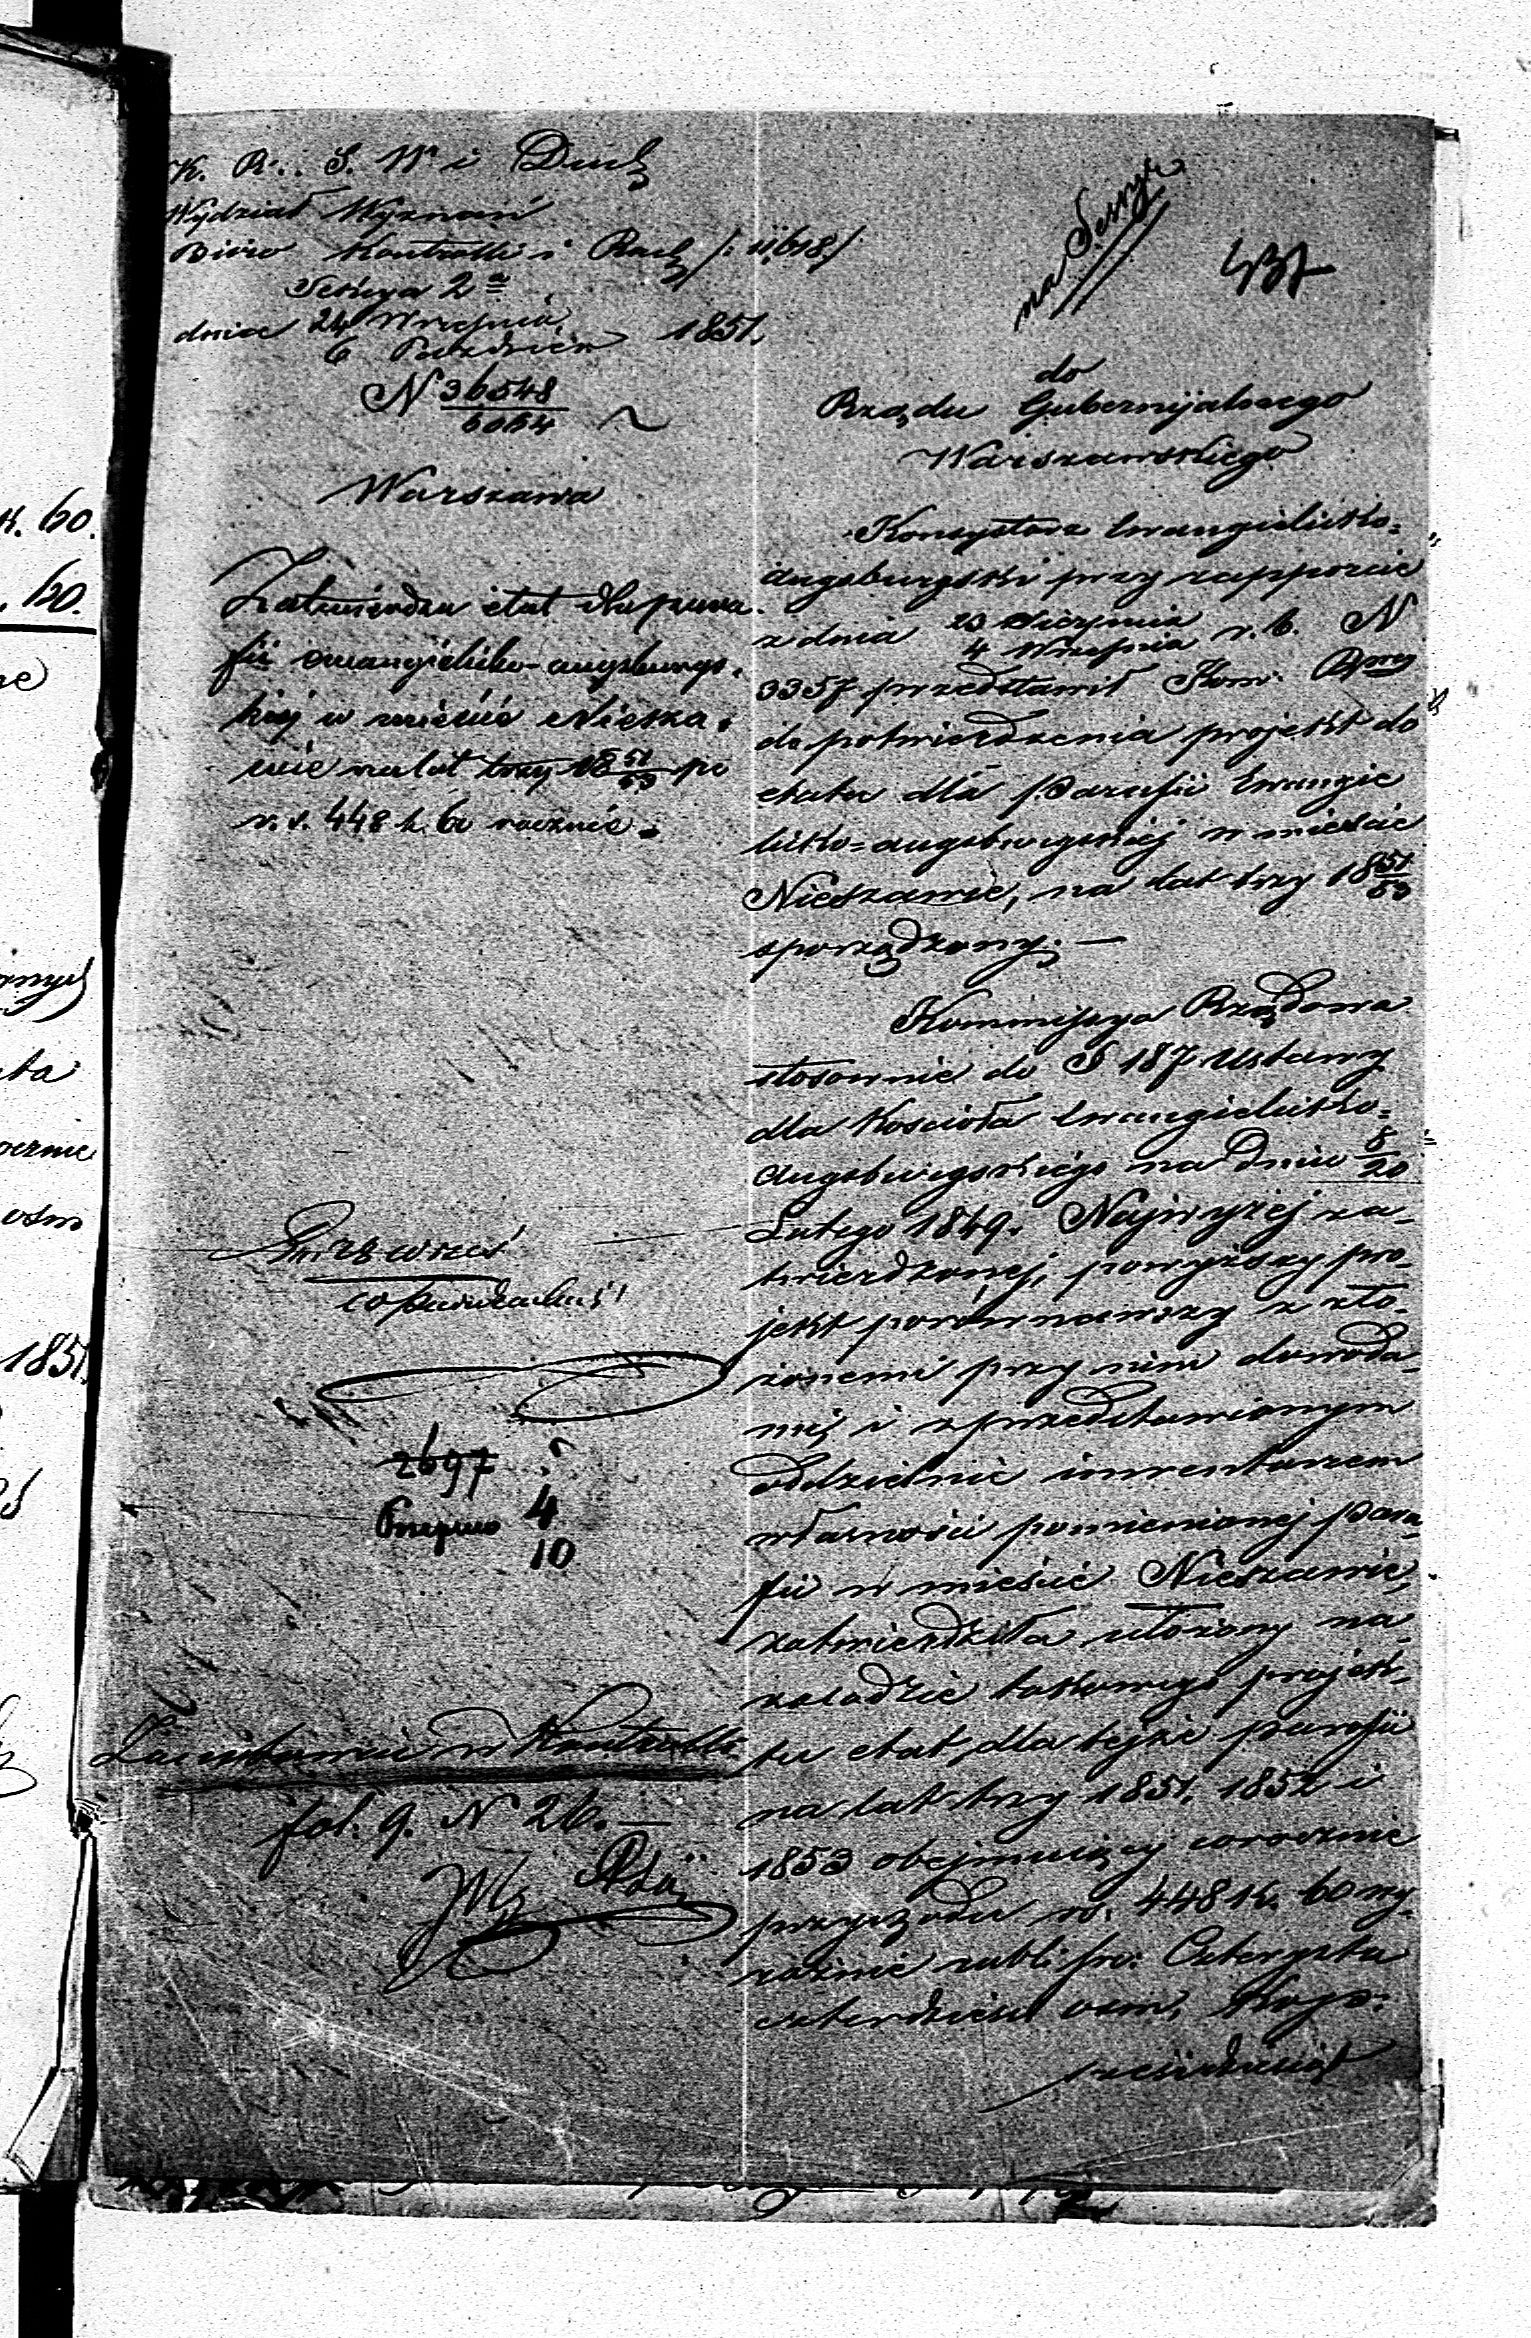 K. R.. S. W i Duch
Wydział Wyznań
Biuro Kontrolli i Rach /: 11,618/
Sekcya 2a
dnia 24 Września
6 Paździer 1851.
N 36548
6064
Warszawa
Zatwierdza etat dla para-
fii ewangielicko-augsburgs-
kiej w mieście Niesza-
wie na lat trzy 18 51/53 po
r. s. 448 k. 60 rocznie.
2697
4
10
w Kontrolli
fol. 9. N 26. —
na Sessyi
437
do
Rządu Gubernijalnego
Warszawskiego
Konsystorz Ewangielicko=
Augsburgski przy rapporcie
z dnia 23 Sierpnia / 4 Września r. b. N
3357 przedstawił Kom. Rząd
do potwierdzenia projekt do
etatu dla Parafii Ewangie
licko=augsburgskiej w mieście
Nieszawie, na lat trzy 18 51/53
sporządzony. —
Kommissya Rządowa
stosownie do § 187 Ustawy
dla Kościoła Ewangielicko=
Augsburgskiego na dniu 8/20
Lutego 1849. Najwyżej za-
twierdzonej, powyższy pro-
jekt porównawszy z zło-
żonemi przy nim dowoda-
mi, i z przedstawionym
oddzielnie inwentarzem
własności pomienionej Para-
fii w mieście Nieszawie,
zatwierdziła ułożony na
zasadzie takowego projek-
tu etat dla tejże parafii
na lat trzy 1851. 1852 i
1853 obejmujący corocznie
przychodu rs. 448 k. 60 wy-
raźnie rubli sr: Czterysta
czterdzieści osm, Kop:
sześćdziesiąt